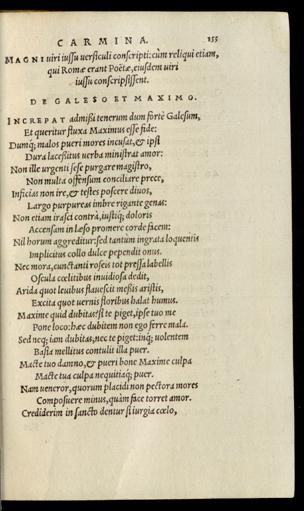 CARMINA. 155
MAGNI uiri iussu uersiculi conscripti: cùm reliqui etiam,
qui Romæ erant Poëtæ, eiusdem uiri
iussu conscripsissent.
DE GALESO ET MAXIMO.
INCREPAT admissi tenerum dum fortè Galesum,
Et queritur fluxa Maximus esse fide:
Dumq; malos pueri mores incusat, & ipsi
Dura lacessitus uerba ministrat amor:
Non ille urgenti sese purgare magistro,
Non multa offensum conciliare prece,
Inficias non ire, & testes poscere diuos,
Largo purpureas imbre rigante genas:
Non etiam irasci contrà, iustiq; doloris
Accensam in læso promere corde facem:
Nil horum aggreditur: sed tantùm ingrata loquentis
Implicitus collo dulce pependit onus.
Nec mora, cunctanti roseis tot pressa labellis
Oscula cœlitibus inuidiosa dedit,
Arida quot leuibus flauescit messis aristis,
Excita quot uernis floribus halat humus.
Maxime quid dubitas? si te piget, ipse tuo me
Pone loco: hæc dubitem non ego ferre mala.
Sed neq; iam dubitas, nec te piget: inq; uolentem
Basia mellitus contulit illa puer.
Macte tuo damno, & pueri bone Maxime culpa
Macte tua culpa nequitiaq; puer.
Nam ueneror, quorum placidi non pectora mores
Composuere minus, quàm face torret amor.
Crediderim in sancto dentur si iurgia cœlo,